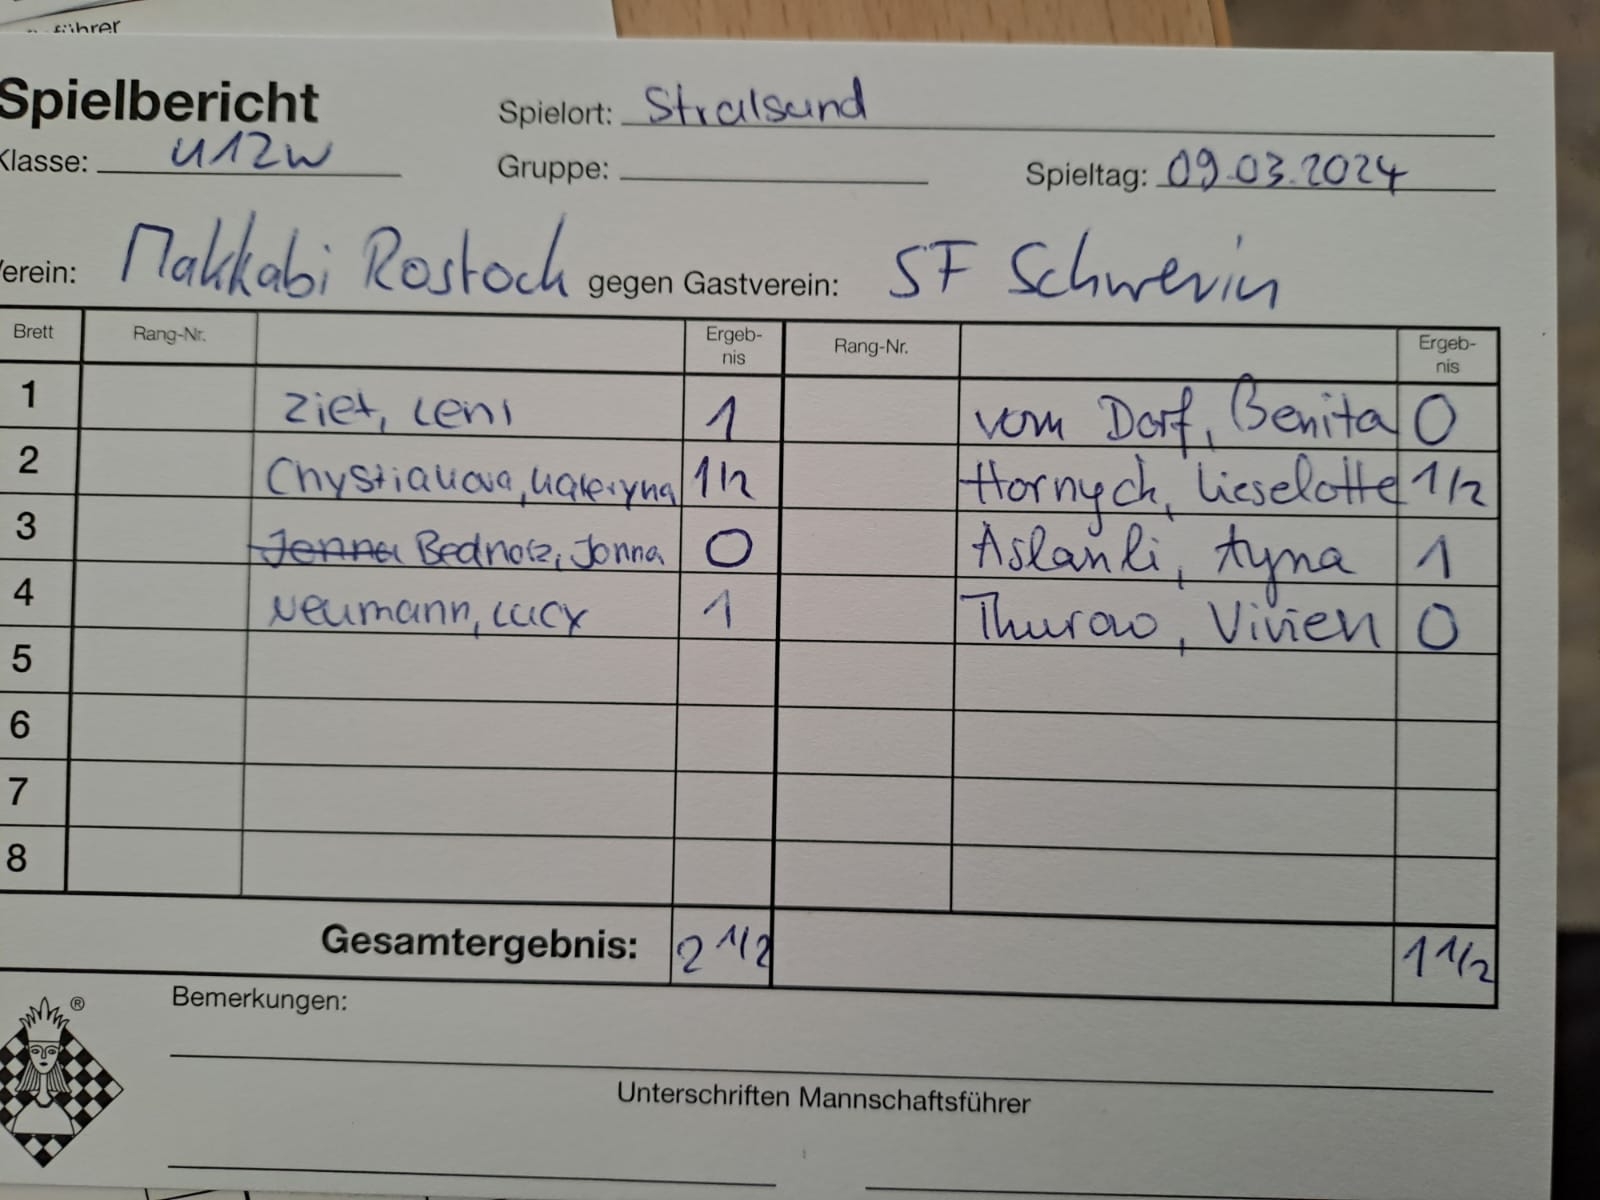 führer
Spielbericht
Spielort: Stralsund
Klasse: U12w
Gruppe:
Spieltag: 09.03.2024
Verein: Makkabi Rostock gegen Gastverein: SF Schwerin
Brett Rang-Nr. Ergeb-nis Rang-Nr. Ergeb-nis
1 Ziet, Leni 1 vom Dorf, Benita 0
2 Chystiakova, Kateryna 1/2 Hornych, Lieselotte 1/2
3 Jonna Bednorz, Jonna 0 Aslanli, Ayna 1
4 Neumann, Lucy 1 Thurow, Vivien 0
5
6
7
8
Gesamtergebnis: 2 1/2 1 1/2
®
Bemerkungen:
Unterschriften Mannschaftsführer